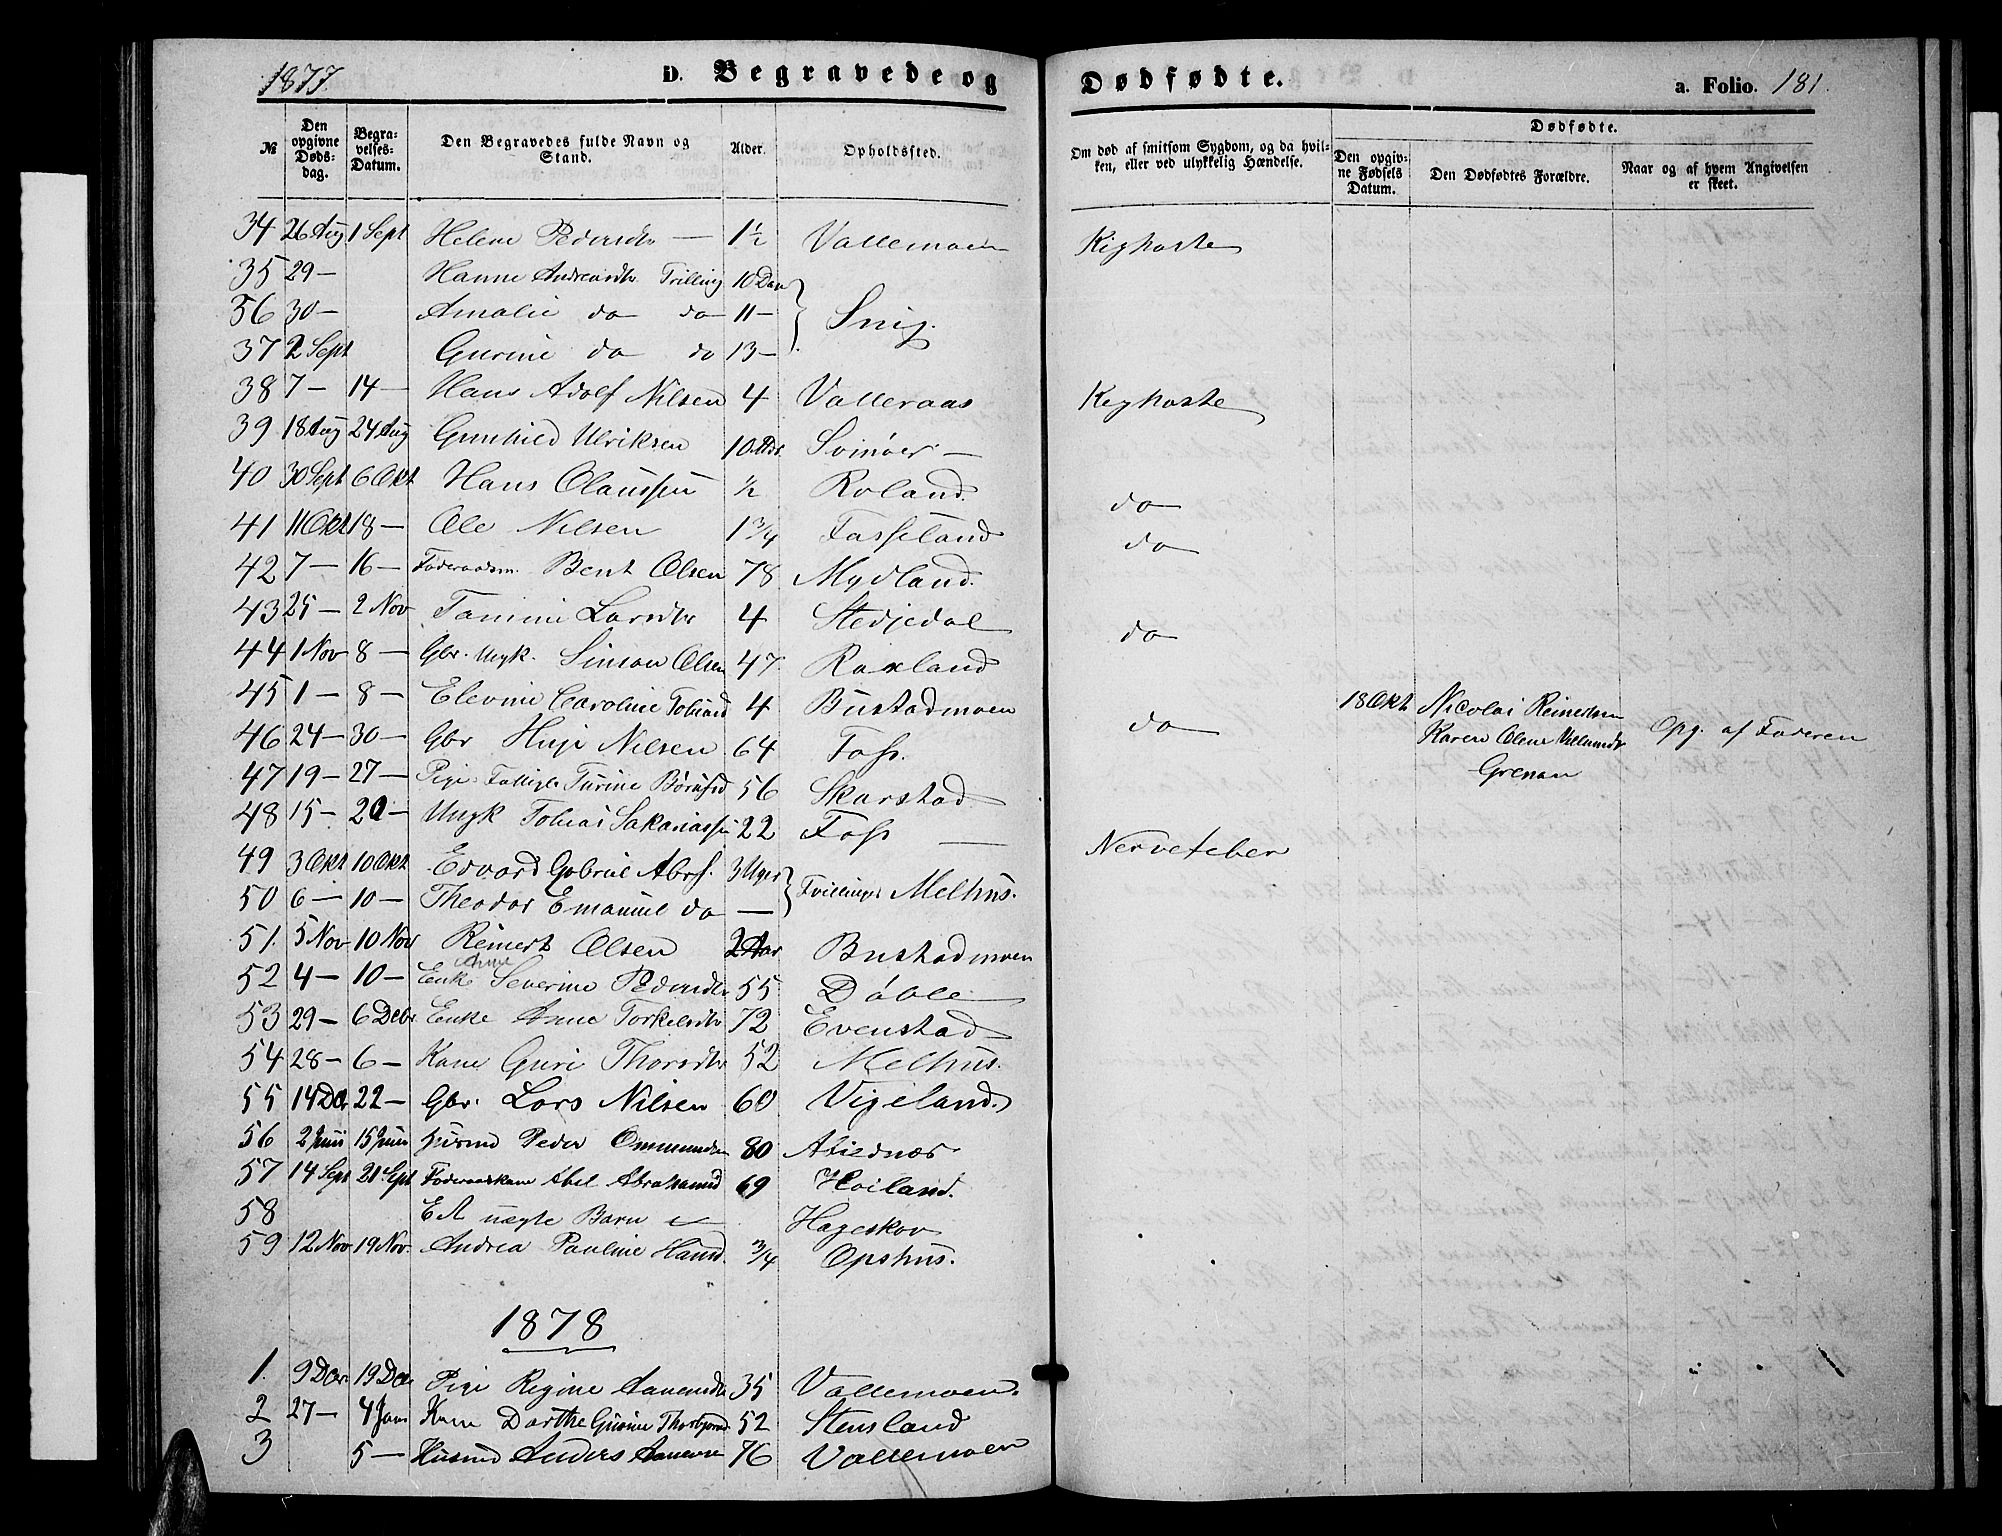 1877.
D. Begravede og Dødfødte. a. Folio. 181.
№
Den opgivne Døds-dag.
Begra-velses-Datum.
Den Begravedes fulde Navn og Stand.
Alder.
Opholdssted.
Om død af smitsom Sygdom, og da hvil-ken, eller ved ulykkelig Hændelse.
Dødfødte.
Den opgiv-ne Fødsels Datum.
Den Dødfødtes Forældre.
Naar og af hvem Angivelsen er skeet.
34 26 Aug 1 Sept Helene Pedersdtr — 1½ Vallemoen Kighoste
35 29 — Hanne Andreasdtr Trilling 10 Dar
36 30 — Amalie do do 11 — Snig.
37 2 Sept Gurine do do 13 —
38 7 — 14 — Hans Adolf Nilsen 4 Valleraas Kighoste
39 18 Aug 24 Aug Gunhild Ulriksen 10 Svinøer —
40 30 Sept 6 Okt Hans Olaussen ½ Roland. do
41 11 Okt 18 — Ole Nilsen 1¾ Fasseland do
42 7 — 16 — Føderaadsm. Bent Olsen 78 Mydland.
43 25 — 2 Nov Tamine Larsdtr 4 Stedjedal do
44 1 Nov 8 — Gbr. Ungk. Simon Olsen 47 Roxland
45 1 — 8 — Elevine Caroline Tobiasd 4 Bustadmoen do 18 Okt Nicolai Reinertsen
Karen Olene Villumsdr Opg. af Faderen
Grenan
46 24 — 30 — Gbr Nilsen 64 Foss.
47 19 — 27 — Pige Fattigl. Turine 56 Skarstad
48 15 — 20 — Ungk Tobias Sakariassen 22 Foss — Nervefeber
49 3 Okt 10 Okt Edvard Gabriel Abrs. 3 Uger
50 6 — 10 — Theodor Emanuel do — Tvillinger Melhus.
51. 5 Nov 10 Nov Reinert Olsen 2 Aar Bustadmoen
Anne
52 4 — 10 — Enke Severine Pedersdtr 55 Døble
53 29 — 6 Debr Enke Anne Torkelsdtr 72 Evenstad
54 28 — 6 — Kone Guri Thorsdtr 52 Melhus.
55 14 Dcr 22 — Gbr. Lars Nilsen 60 Vigeland.
56 2 Juni 15 Juni Husmd Peder Ommundsen 80
57 14 Sept 21 Sept Føderaadskone Abel Abrahamsd 69 Høiland.
58 Et uægte Barn Hageskov
59 12 Nov 19 Nov. Andrea Pauline Hansd. ¾ Opshus.
1878
1. 9 Dcr. 19 Dcr Pige Regine Aanensdtr 35 Vallemoen.
2 27 — 4 Jan Kone Dorthe Gurine Thorbjørnsd 52 Stensland
3 5 — Husmd Anders Aanensen 76 Vallemoen